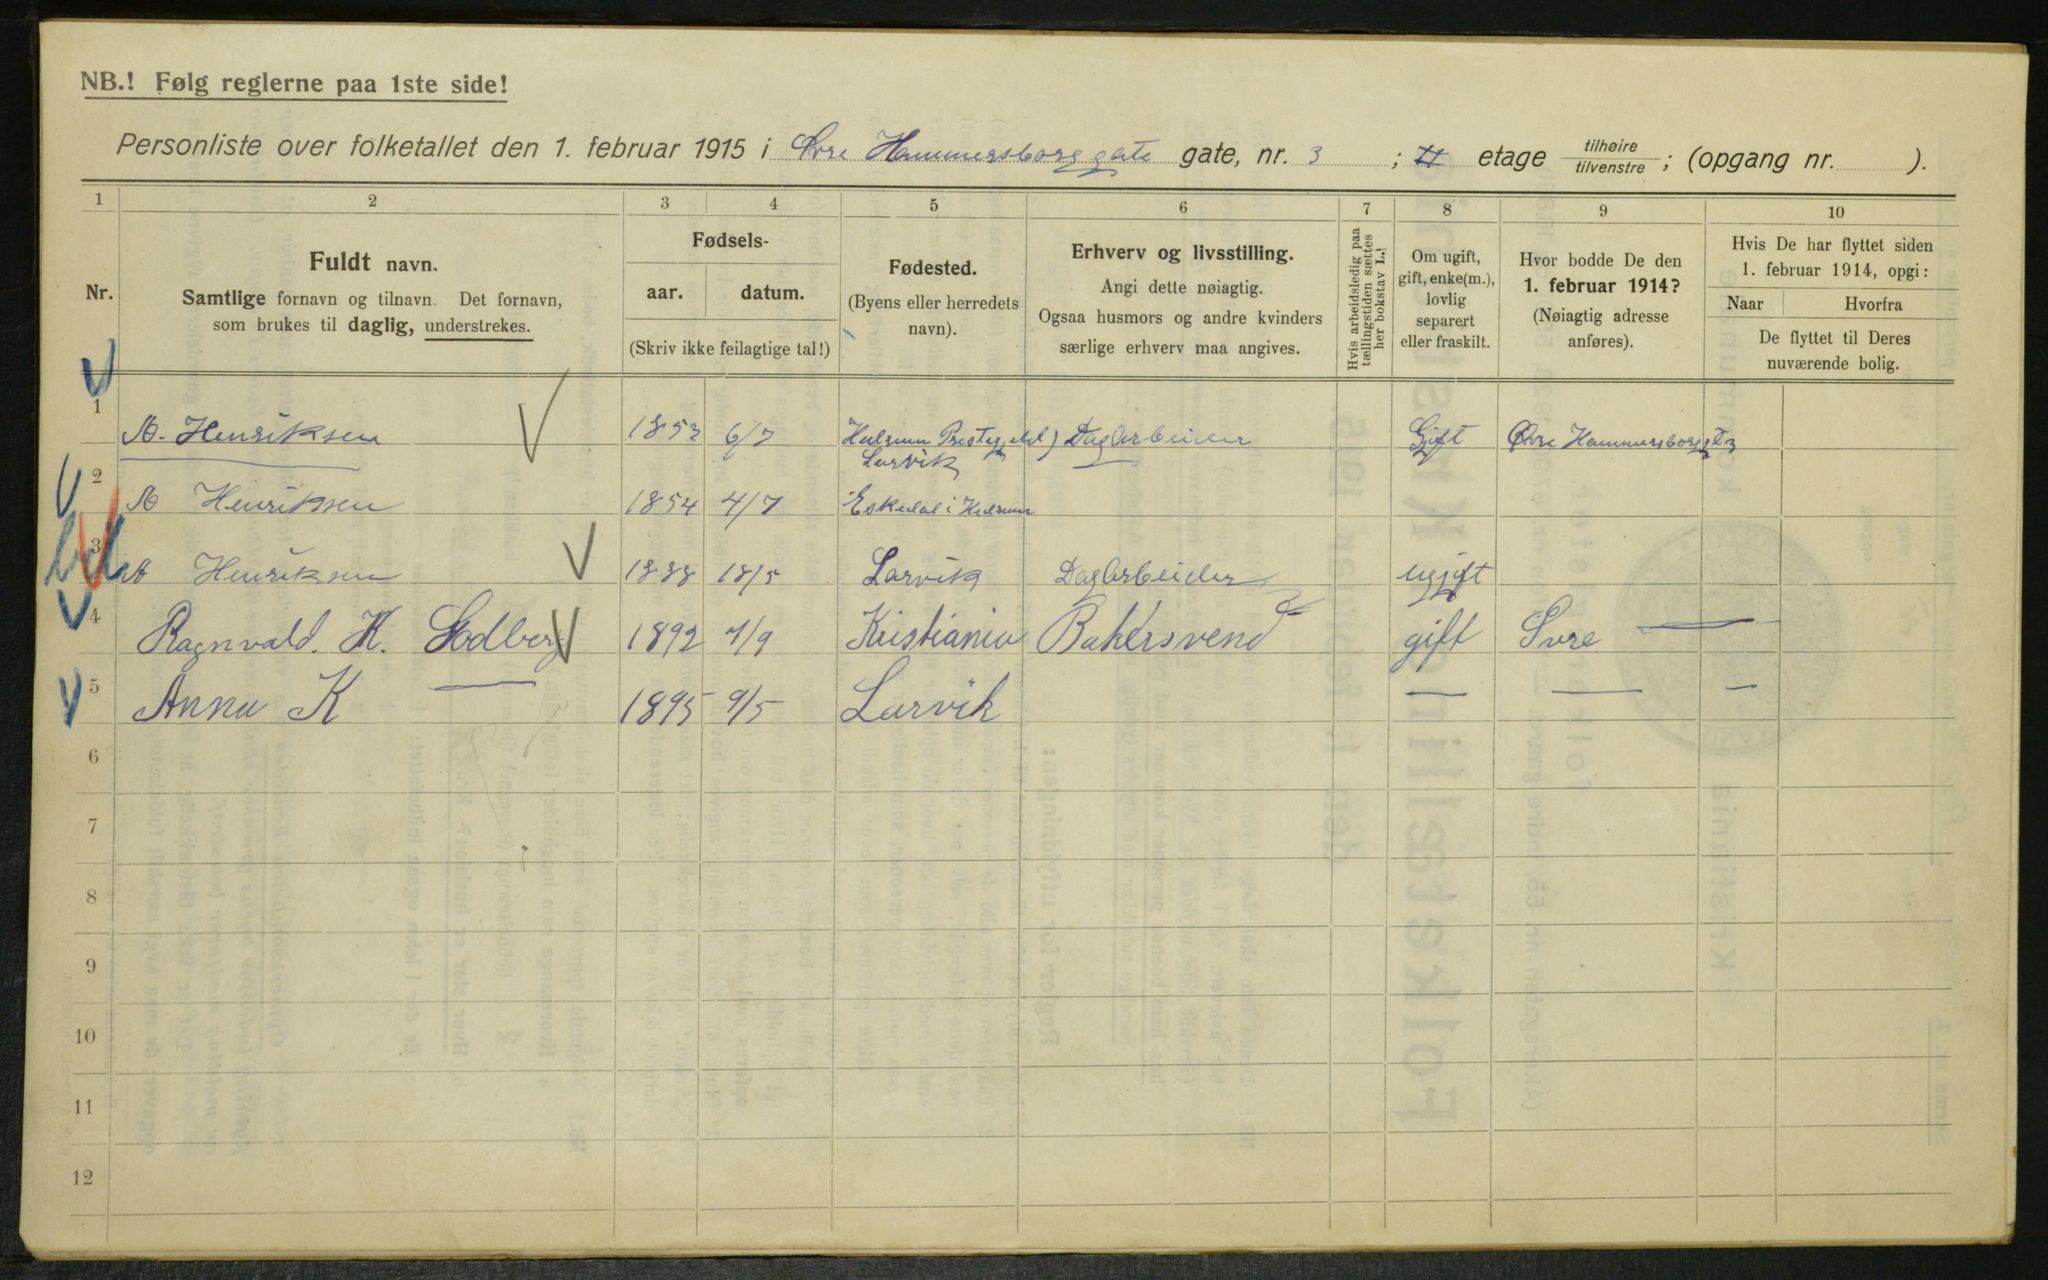 NB.! Følg reglerne paa 1ste side!
Personliste over folketallet den 1. februar 1915 i Øvre Hammersborggate gate, nr. 3 ; II etage tilhøire / tilvenstre ; (opgang nr. ).
1 2 3 4 5 6 7 8 9 10
Nr.
Fuldt navn.
Samtlige fornavn og tilnavn. Det fornavn,
som brukes til daglig, understrekes.
Fødsels-
aar. datum.
(Skriv ikke feilagtige tal!)
Fødested.
(Byens eller herredets
navn).
Erhverv og livsstilling.
Angi dette nøiagtig.
Ogsaa husmors og andre kvinders
særlige erhverv maa angives.
Hvis arbeidsledig paa
tællingstiden sættes
her bokstav L.!
Om ugift,
gift, enke(m.),
lovlig
separert
eller fraskilt.
Hvor bodde De den
1. februar 1914?
(Nøiagtig adresse
anføres).
Hvis De har flyttet siden
1. februar 1914, opgi:
Naar Hvorfra
De flyttet til Deres
nuværende bolig.
1 Henriksen 1852 6/7 Hedrum Prestegjeld) Larvik Dagarbeider Gift Øvre Hammersborggt 3
2 Henriksen 1854 4/7 Eskedal i Hedrum
3 Henriksen 1888 18/5 Larvik Dagarbeider ugift
4 Ragnvald. K. Godberg 1892 7/9 Kristiania Bakersvend gift —
5 Anna K — 1895 9/5 Larvik — — —
6
7
8
9
10
11
12